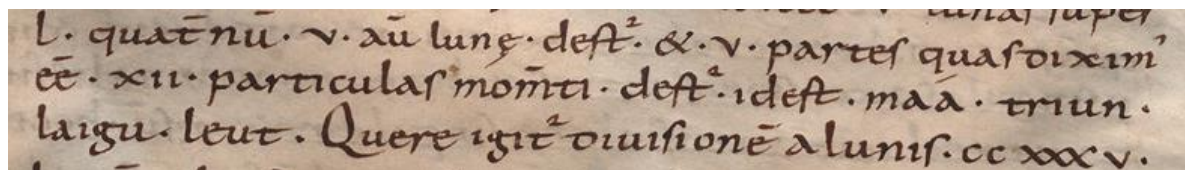 lunas super
l. quat̄nū. v. aū lunę. deſt᷑. &. v. parteſ quaſ diximꝰ
eē. xii. particulaſ mom̄ti. deſt᷑. ideſt. maá. triun.
laigu. leut. Quere igit᷑ diuiſionē a luniſ. cc xxx v.